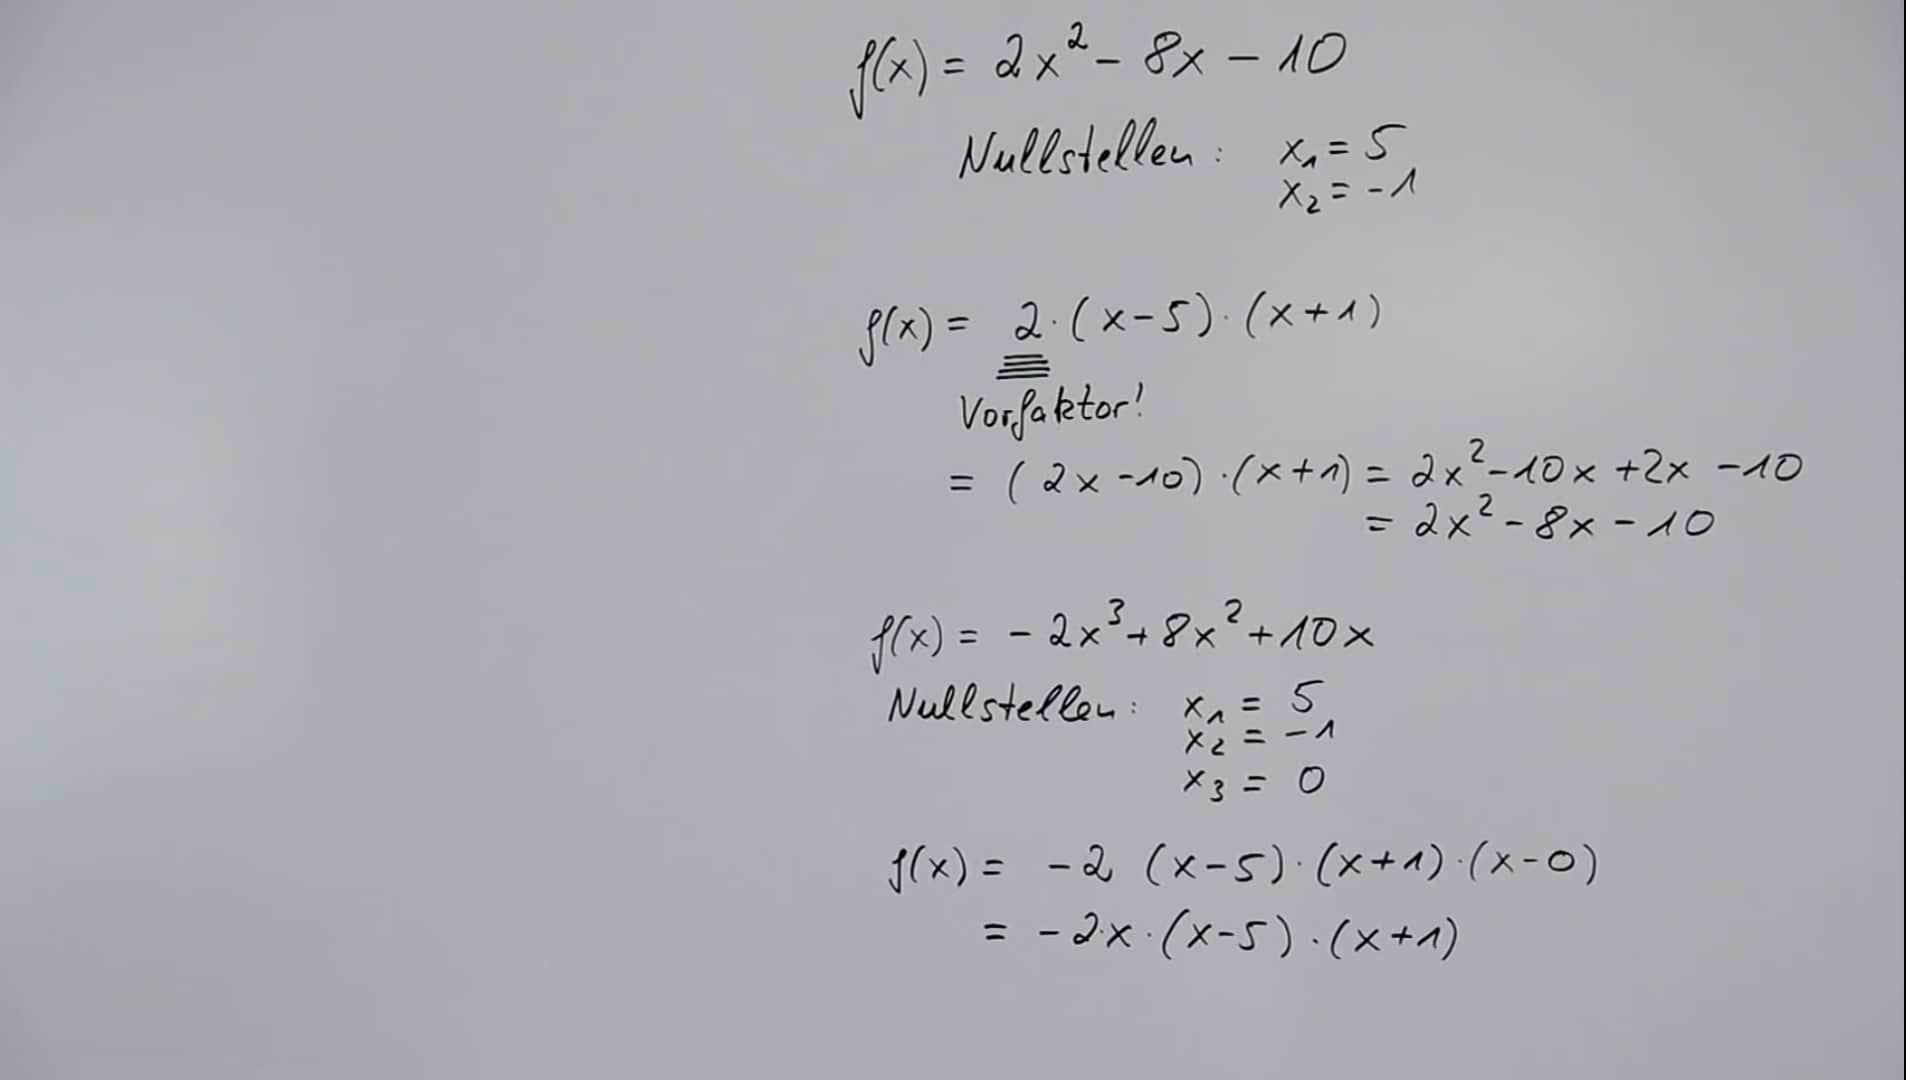 f(x) = 2x² - 8x - 10
Nullstellen: x₁ = 5
x₂ = -1
f(x) = 2·(x-5)·(x+1)
Vorfaktor!
= (2x-10)·(x+1) = 2x²-10x+2x-10
= 2x²-8x-10
f(x) = -2x³+8x²+10x
Nullstellen: x₁ = 5
x₂ = -1
x₃ = 0
f(x) = -2 (x-5)·(x+1)·(x-0)
= -2·x·(x-5)·(x+1)